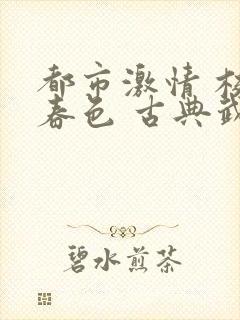 都市激情 校
春色 古典武
碧水煎茶